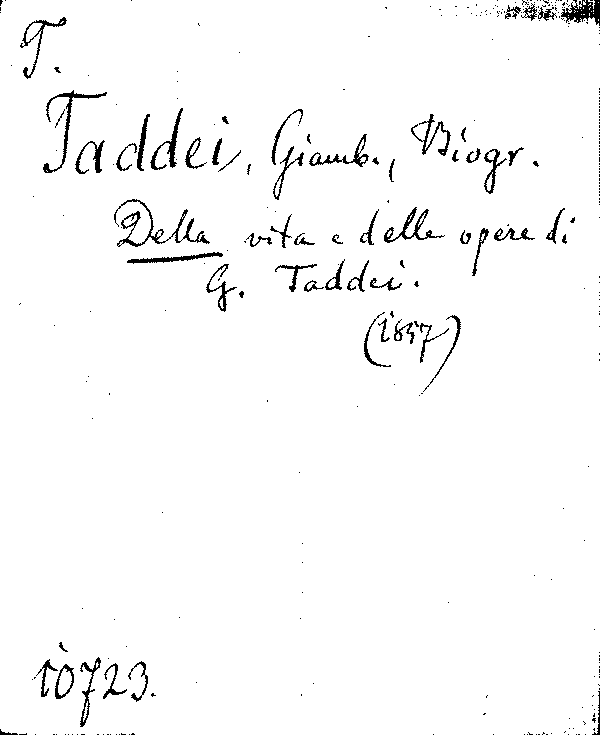 T.
Taddei, Giamb., Biogr.
Della vita e delle opere di
G. Taddei.
(1857)
10723.